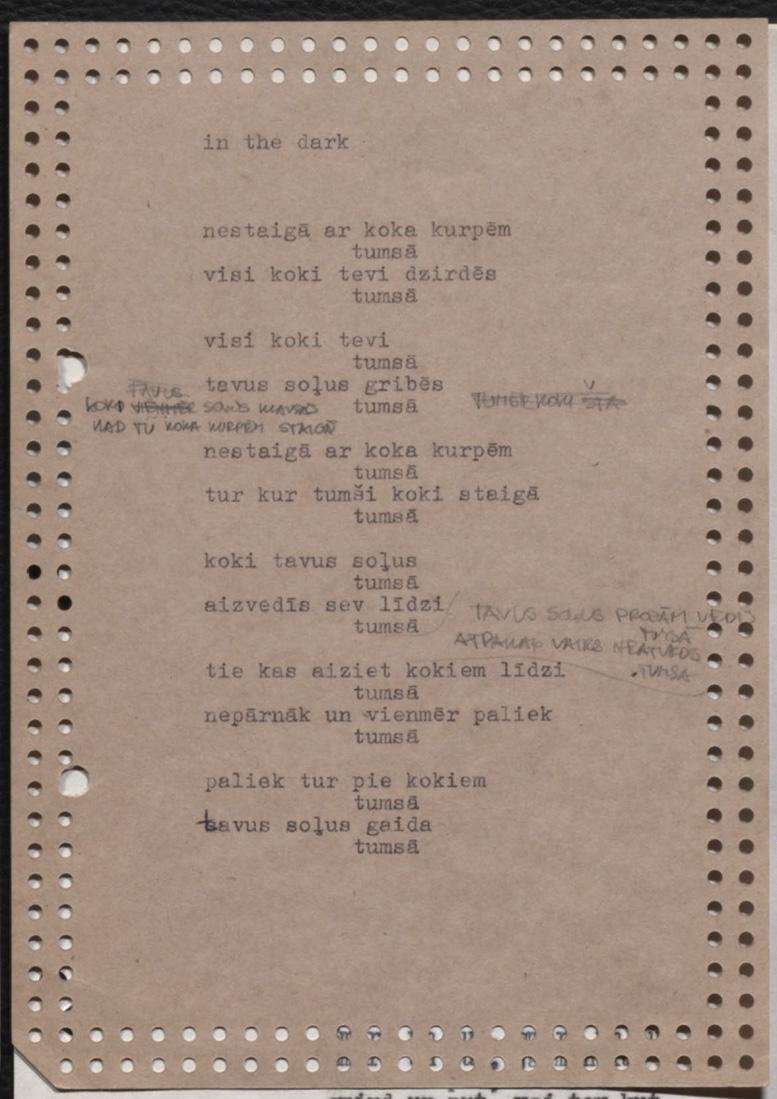 in the dark
nestaigā ar koka kurpēm
tumsā
visi koki tevi dzirdēs
tumsā
visi koki tevi
tumsā
tavus soļus gribēs
tumsā
TAVUS
KOKI VIENMĒR SOĻUS KLAUSĀS
KAD TU KOKA KURPĒM STAIGĀ
TUMŠIE KOKI
nestaigā ar koka kurpēm
tumsā
tur kur tumši koki staigā
tumsā
koki tavus soļus
tumsā
aizvedīs sev līdzi
tumsā
TAVUS SOĻUS PROJĀM VEDĪS
TUMSĀ
ATPAKAĻ VAIRS NEATVEDĪS
TUMSĀ
tie kas aiziet kokiem līdzi
tumsā
nepārnāk un vienmēr paliek
tumsā
paliek tur pie kokiem
tumsā
tavus soļus gaida
tumsā